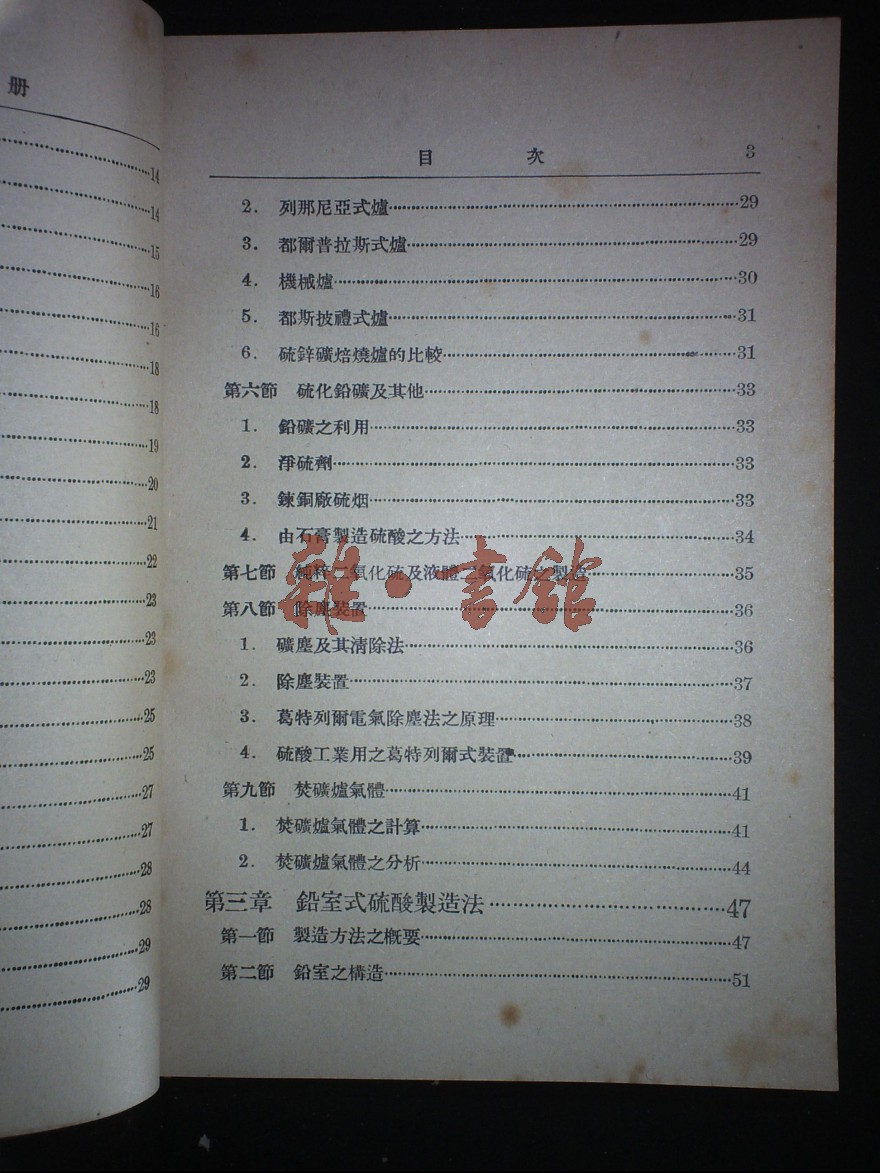 册
14
14
15
16
16
18
18
19
20
21
22
23
23
23
25
25
27
27
28
28
29
29
目 次 3
2. 列那尼亞式爐 29
3. 都爾普拉斯式爐 29
4. 機械爐 30
5. 都斯披禮式爐 31
6. 硫鋅礦焙燒爐的比較 31
第六節 硫化鉛礦及其他 33
1. 鉛礦之利用 33
2. 淨硫劑 33
3. 鍊銅廠硫烟 33
4. 由石膏製造硫酸之方法 34
第七節 純粹二氧化硫及液體二氧化硫之製造 35
第八節 除塵裝置 36
1. 礦塵及其清除法 36
2. 除塵裝置 37
3. 葛特列爾電氣除塵法之原理 38
4. 硫酸工業用之葛特列爾式裝置 39
第九節 焚礦爐氣體 41
1. 焚礦爐氣體之計算 41
2. 焚礦爐氣體之分析 44
第三章 鉛室式硫酸製造法 47
第一節 製造方法之概要 47
第二節 鉛室之構造 51
雜·書館